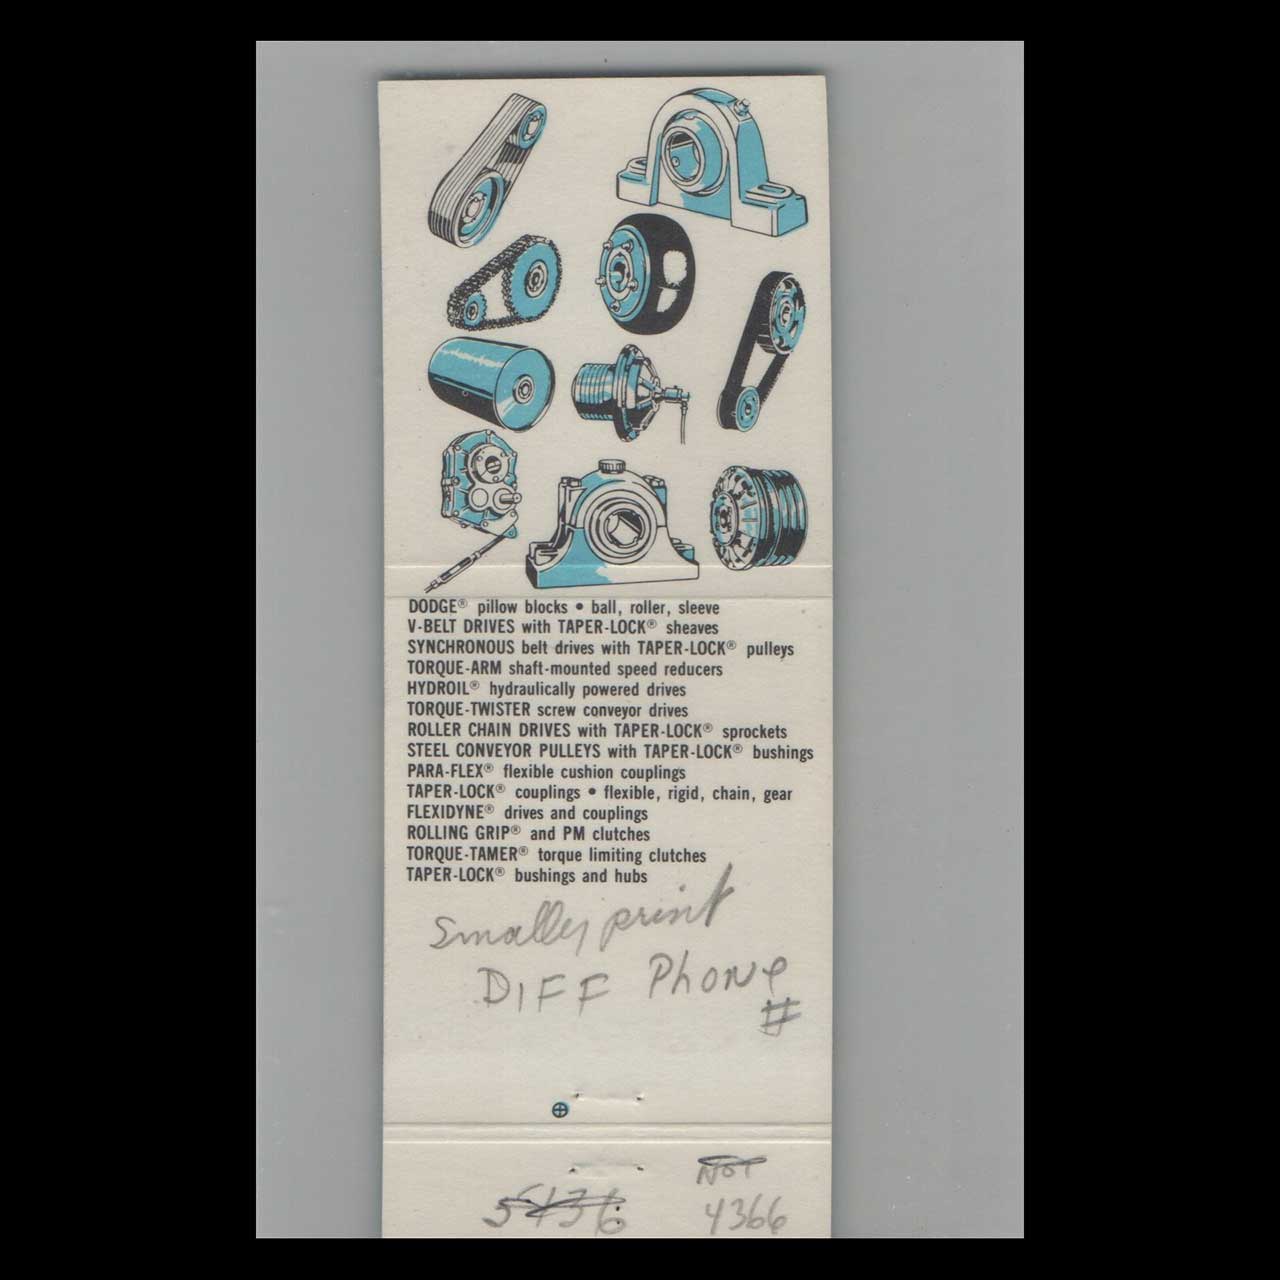 DODGE® pillow blocks • ball, roller, sleeve
V-BELT DRIVES with TAPER-LOCK® sheaves
SYNCHRONOUS belt drives with TAPER-LOCK® pulleys
TORQUE-ARM shaft-mounted speed reducers
HYDROIL® hydraulically powered drives
TORQUE-TWISTER screw conveyor drives
ROLLER CHAIN DRIVES with TAPER-LOCK® sprockets
STEEL CONVEYOR PULLEYS with TAPER-LOCK® bushings
PARA-FLEX® flexible cushion couplings
TAPER-LOCK® couplings • flexible, rigid, chain, gear
FLEXIDYNE® drives and couplings
ROLLING GRIP® and PM clutches
TORQUE-TAMER® torque limiting clutches
TAPER-LOCK® bushings and hubs
print
DIFF Phone
#
NOT
5436 4366